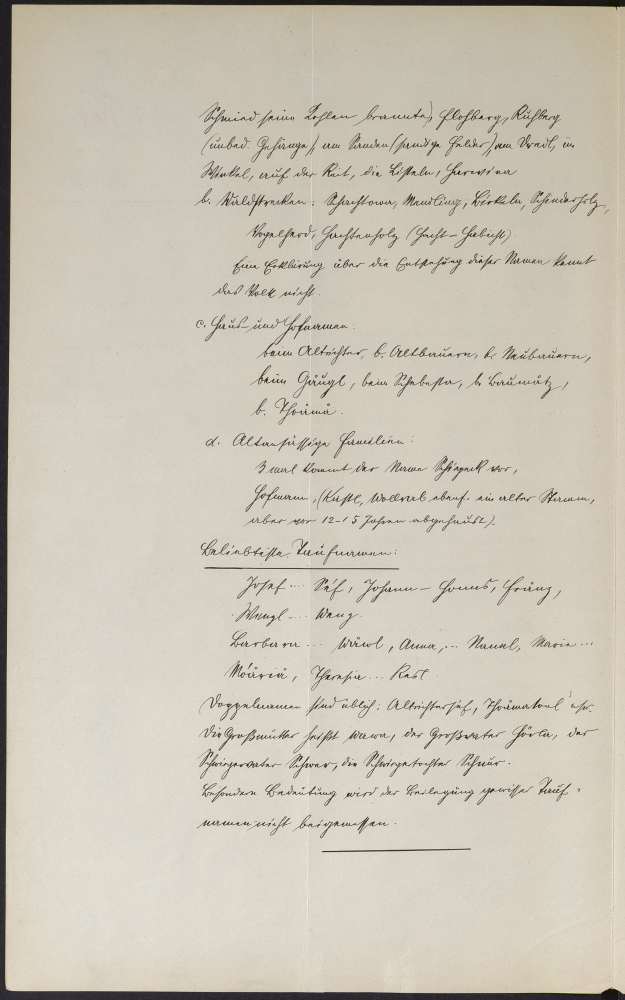 Schmied seine Kohlen brannte), Flohberg, Kuhberg
(unbed. Gehänge), am Sanden (sandige Felder), am Dradl, im
Winkel, auf der Reit, die Listeln,
b. Waldstrecken: Schachtown, Mendling, Birkeln, Schinderholz,
Vogelherd, Hachtenholz (Hacht - Habicht)
Eine Erklärung über die Entstehung dieser Namen kennt
das Volk nicht.
c. Haus- und Hofnamen.
beim Altrichter, b. Altbauern, b. Neubauern,
beim Gäugl, beim Schebesta, b. Baumatz,
b. Thoama.
d. Altansässige Familien:
3 mal kommt der Name vor,
Hofmann, (Kastl, Wollrab ebenf. ein alter Stamm,
aber vor 12-15 Jahren abgehaust).
Beliebteste Taufnamen:
Josef ... Sef, Johann - Honns, Franz,
Wenzl ... Wenz.
Barbara ... Wawl, Anna, ... Nannl, Maria ...
Moaria, Theresia ... Resl.
Doppelnamen sind üblich: Altrichtersef, Thoamatonl usw.
Die Großmutter heißt Wawa, der Großvater Herla, der
Schwiegervater Schwer, die Schwiegertochter Schnur.
Besondere Bedeutung wird der Beilegung gewisser Tauf-
namen nicht beigemessen.